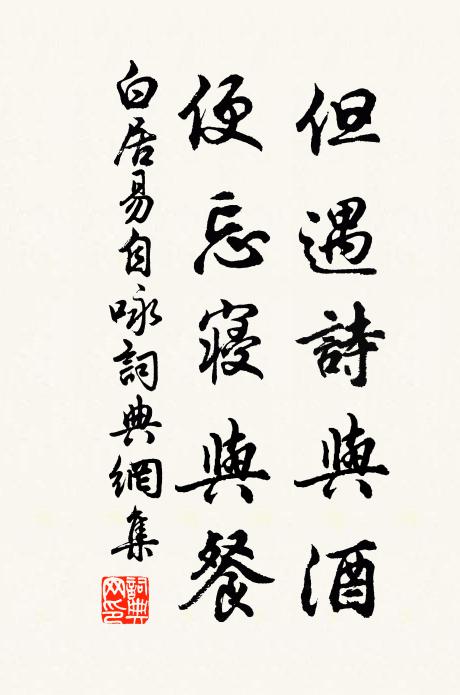 但遇詩與酒
便忘寢與餐
白居易自咏詞典網集
詞典網印